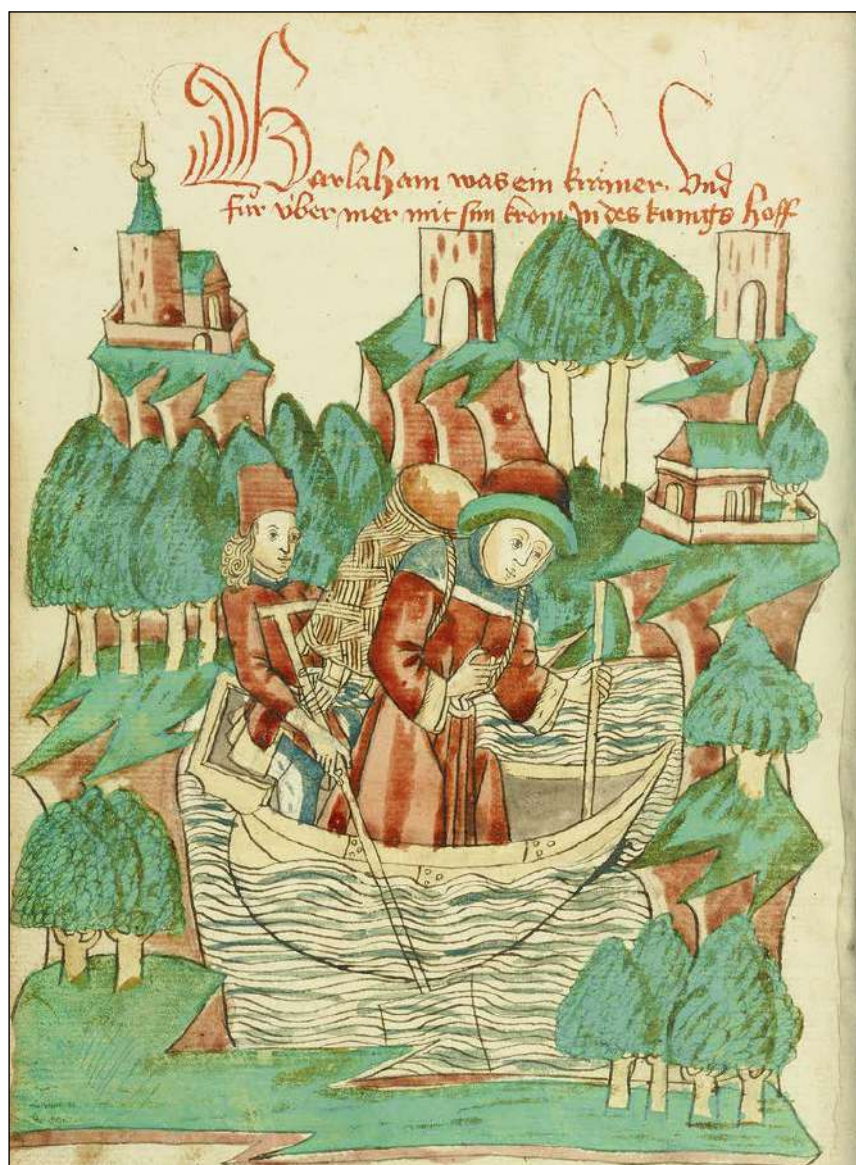 Barlaham was ein krämer. Vnd
für über mer mit sim krom jn des kunigs hoff